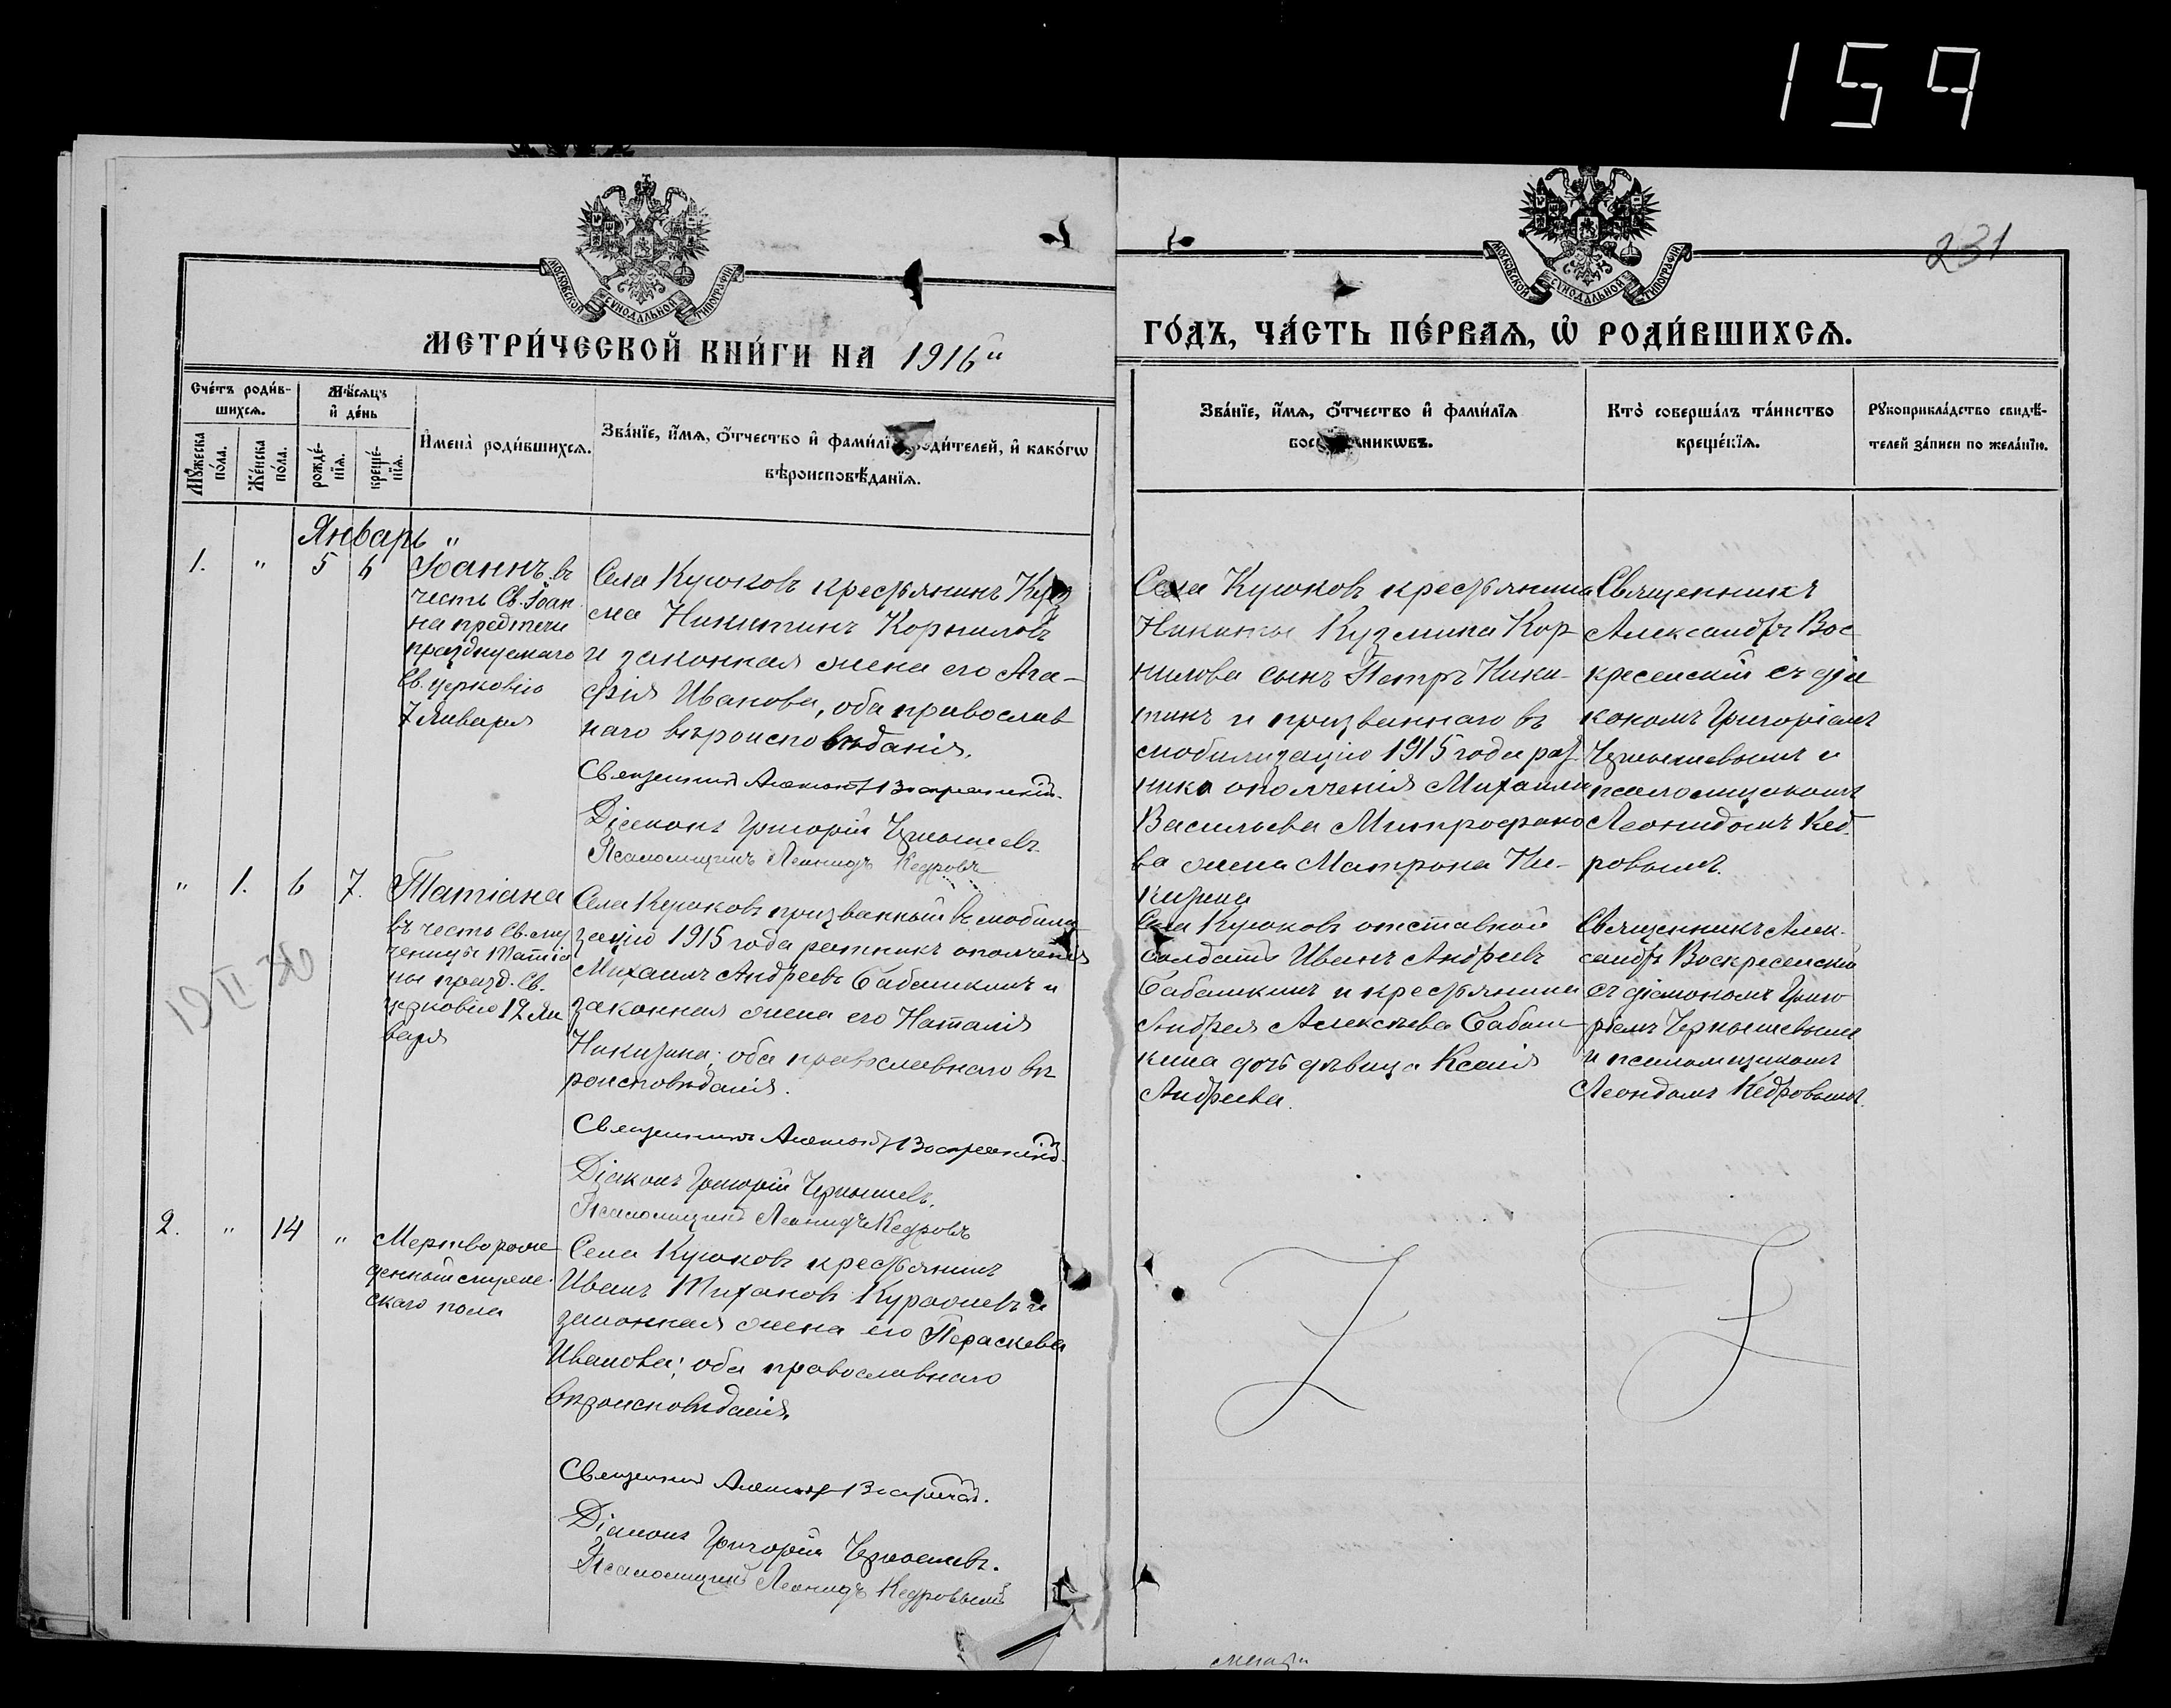 159
231
МОСКОВСКОЙ СѴНОДАЛЬНОЙ ТИПОГРАФІИ
МОСКОВСКОЙ СѴНОДАЛЬНОЙ ТИПОГРАФІИ
МЕТРИ́ЧЕСКОЙ КНИ́ГИ НА 1916й
ГО́ДЪ, ЧА́СТЬ ПЕ́РВАЯ, Ѿ РОДИ́ВШИХСЯ.
Сче́тъ роди́в-
шихся.
Му́жеска
по́ла.
Же́нска
по́ла.
Мѣ́сяцъ
и де́нь
рожде́-
нія.
креще́-
нія.
Имена̀ роди́вшихся.
Зва́ніе, и́мя, о́тчество и фами́лія роди́телей, и како́гѡ
вѣроисповѣ́данія.
Зва́ніе, и́мя, о́тчество и фами́лія
воспріемникѡвъ.
Кто̀ соверша́лъ та́инство
креще́нія.
Рꙋкоприкла́дство свидѣ́-
телей за́писи по жела́нію.
Январь "
1. " 5 6
Іоаннъ въ
честь Св. Іоан
на предтечи
празднуемаго
Св. церковію
7 Января
Села Кушковъ крестьянинъ Куз
ма Никитинъ Корниловъ
и законная жена его Ага-
фія Иванова, оба православ
наго вѣроисповѣданія.
Священникъ Александръ Воскресенскій.
Діаконъ Григорій Чернышевъ
Псаломщикъ Леонидъ Кедровъ
Села Кушковъ крестьянина
Никиты Кузмина Кор
нилова сынъ Петръ Ники-
тинъ и призваннаго въ
мобилизацію 1915 года рат
ника ополченія Михаила
Васильева Митрофано
ва жена Матрона Ни-
Священникъ
Александръ Вос
кресенскій съ діа
кономъ Григоріемъ
Чернышевымъ и
псаломщикомъ
Леонидомъ Кед
ровымъ.
" 1. 6 7.
Татіана
въ честь Св. му
ченицы Татіа
ны празд. Св.
церковію 12 Ян
варя
Села Кушковъ призванный въ мобили
зацію 1915 года ратникъ ополченія
Михаилъ Андреевъ Бабашкинъ и
законная жена его Наталія
оба православнаго вѣ
роисповѣданія.
Священникъ Александръ Воскресенскій.
Діаконъ Григорій Чернышевъ.
Псаломщикъ Леонидъ Кедровъ
Села Кушковъ отставной
солдатъ Иванъ Андреевъ
Бабашкинъ и крестьянина
Андрея Алексѣева Бабаш
кина дочь дѣвица Ксенія
Андреева.
Священникъ Алек-
сандръ Воскресенскій
съ діакономъ Григо
ріемъ Чернышевымъ
и псаломщикомъ
Леондомъ Кедровымъ.
2. " 14 "
Мертворож
денный мужес
скаго пола
Села Кушковъ крестьянинъ
Иванъ Тихановъ и
законная жена его Параскева
Иванова; оба православнаго
вѣроисповѣданія.
Священникъ Александръ Воскресенскій.
Діаконъ Григорій Чернышевъ.
Псаломщикъ Леонидъ Кедровымъ